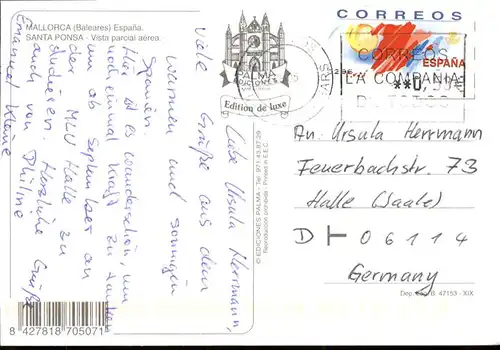 MALLORCA (Baleares) España.
SANTA PONSA - Vista parcial aérea.
Liebe Ursula Herrmann,
Viele Grüße aus dem
warmen und sonnigen
Spanien.
Hier ist es wunderschön, um
noch einmal Kraft zu tanken
um ab September an
der MLU Halle zu
studieren. Herzliche Grüße
auch von Philine
Emanuel Klame
PALMA
EDICIONES
Edition de luxe
© EDICIONES PALMA - Tel. 971 43 87 29
Reproducción prohibida - Printed in E.E.C.
CORREOS
ESPAÑA
CORREOS
LA COMPAÑIA
DE TODOS
An. Ursula Herrmann
Feuerbachstr. 73
Halle (Saale)
D - 06114
Germany
Dep. Leg. B. 47153 - XIX
8 427818 705071